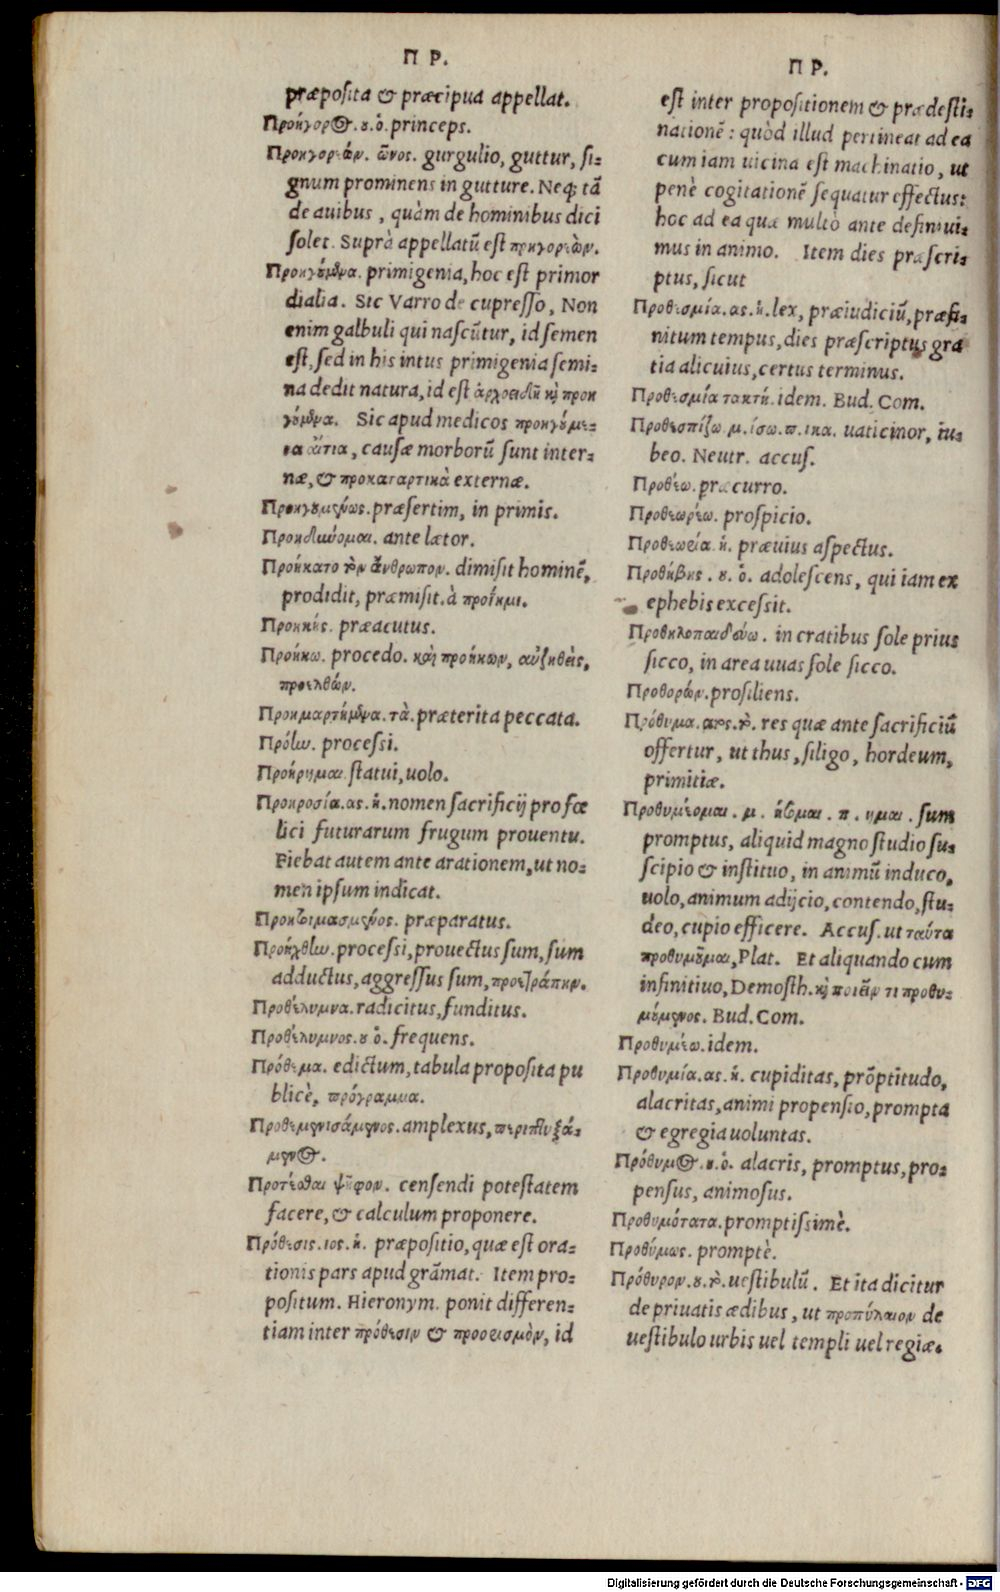 Π Ρ.
præposita & præcipua appellat.
Προήγορος. ου. ὁ. princeps.
Προηγορεών. ῶνος. gurgulio, guttur, si=
gnum prominens in gutture. Neq; tā
de auibus, quàm de hominibus dici
solet. Suprà appellatū est πρηγορεὼν.
Προηγούμενα. primigenia, hoc est primor
dialia. Sic Varro de cupresso, Non
enim galbuli qui nascūtur, id semen
est, sed in his intus primigenia semi=
na dedit natura, id est ἀρχοειδῆ καὶ προη
γούμενα. Sic apud medicos προηγούμε=
να αἴτια, causæ morborū sunt inter=
næ, & προκαταρτικὰ externæ.
Προηγουμένως. præsertim, in primis.
Προηδύνομαι. ante lætor.
Προήκατο τὸν ἄνθρωπον. dimisit hominē,
prodidit, præmisit. à προΐημι.
Προηκής. præacutus.
Προήκω. procedo. καὶ προήκων, αὐξηθεὶς,
προελθών.
Προημαρτημένα. τὰ. præterita peccata.
Πρόην. processi.
Προήρημαι. statui, uolo.
Προηροσία. ας. ἡ. nomen sacrificij pro fœ
lici futurarum frugum prouentu.
Fiebat autem ante arationem, ut no=
men ipsum indicat.
Προητοιμασμένος. præparatus.
Προήχθην. processi, prouectus sum, sum
adductus, aggressus sum, προετράπην.
Προθέλυμνα. radicitus, funditus.
Προθέλυμνος. ου ὁ. frequens.
Πρόθεμα. edictum, tabula proposita pu
blicè, πρόγραμμα.
Προθεμενισάμενος. amplexus, περιπτυξά=
μενος.
Προτέσθαι ψῆφον. censendi potestatem
facere, & calculum proponere.
Πρόθεσις. ιος. ἡ. præpositio, quæ est ora=
tionis pars apud grāmat. Item pro=
positum. Hieronym. ponit differen=
tiam inter πρόθεσιν & προορισμὸν, id
Π Ρ.
est inter propositionem & prædesti=
nationē: quòd illud pertineat ad ea
cum iam uicina est machinatio, ut
penè cogitationē sequatur effectus:
hoc ad ea quæ multò ante definiui=
mus in animo. Item dies præscri=
ptus, sicut
Προθεσμία. ας. ἡ. lex, præiudiciū, præfi=
nitum tempus, dies præscriptus gra
tia alicuius, certus terminus.
Προθεσμία τακτή. idem. Bud. Com.
Προθεσπίζω. μ. ίσω. π. ικα. uaticinor, iu=
beo. Neutr. accus.
Προθέω. præcurro.
Προθεωρέω. prospicio.
Προθεωρία. ἡ. præuius aspectus.
Προθήβης. ου. ὁ. adolescens, qui iam ex
ephebis excessit.
Προθηλοπαιδεύω. in cratibus sole prius
sicco, in area uuas sole sicco.
Προθορών. prosiliens.
Πρόθυμα. ατος. τὸ. res quæ ante sacrificiū
offertur, ut thus, siligo, hordeum,
primitiæ.
Προθυμέομαι. μ. ήσομαι. π. ημαι. sum
promptus, aliquid magno studio su=
scipio & instituo, in animū induco,
uolo, animum adijcio, contendo, stu=
deo, cupio efficere. Accus. ut ταῦτα
προθυμοῦμαι, Plat. Et aliquando cum
infinitiuo, Demosth. καὶ ποιεῖν τι προθυ=
μούμενος. Bud. Com.
Προθυμέω. idem.
Προθυμία. ας. ἡ. cupiditas, prōptitudo,
alacritas, animi propensio, prompta
& egregia uoluntas.
Πρόθυμος. ου. ὁ. alacris, promptus, pro=
pensus, animosus.
Προθυμότατα. promptissimè.
Προθύμως. promptè.
Πρόθυρον. ου. τὸ. uestibulū. Et ita dicitur
de priuatis ædibus, ut προπύλαιον de
uestibulo urbis uel templi uel regiæ.
Digitalisierung gefördert durch die Deutsche Forschungsgemeinschaft - DFG